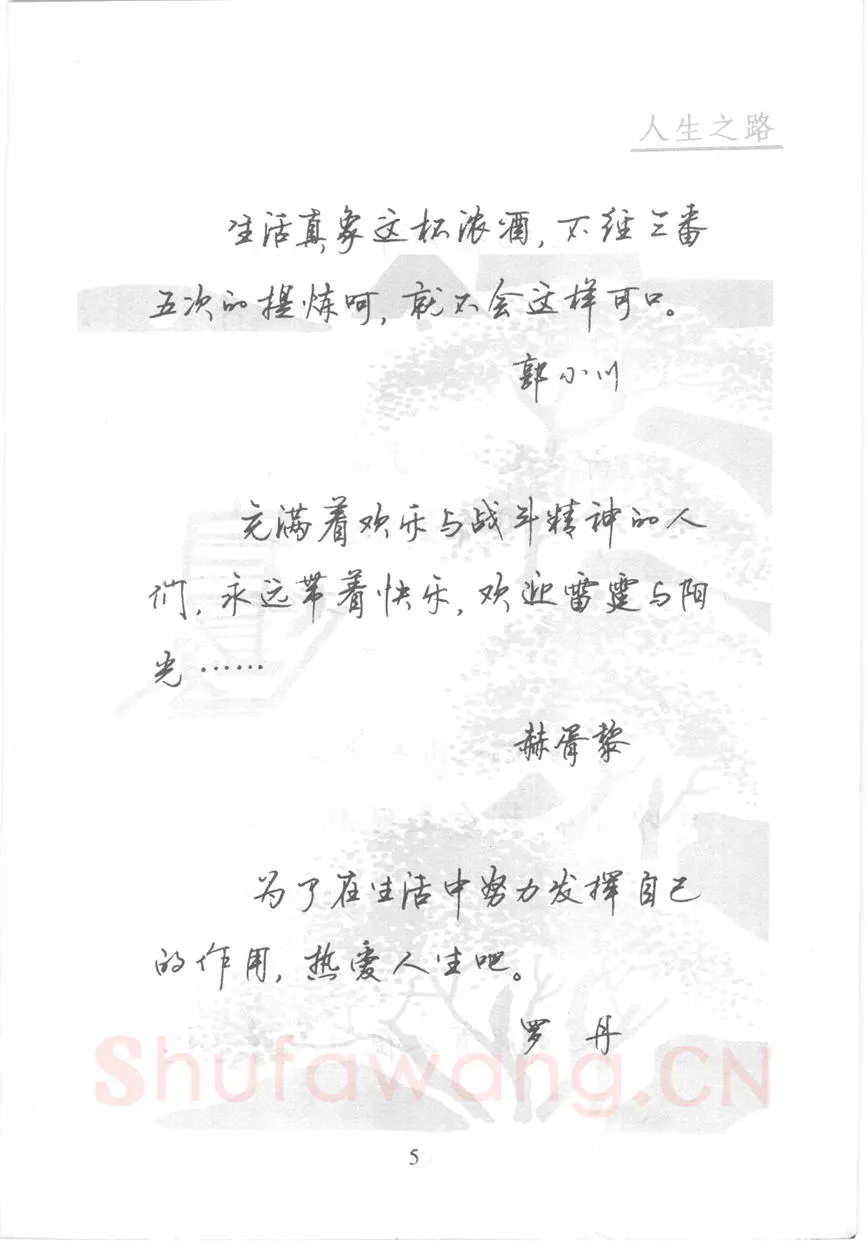 人生之路
生活真象这杯浓酒,不经三番
五次的提炼呵,就不会这样可口。
郭小川
充满着欢乐与战斗精神的人
们,永远带着快乐,欢迎雷霆与阳
光……
赫胥黎
为了在生活中努力发挥自己
的作用,热爱人生吧。
罗丹
Shufawang.CN
5